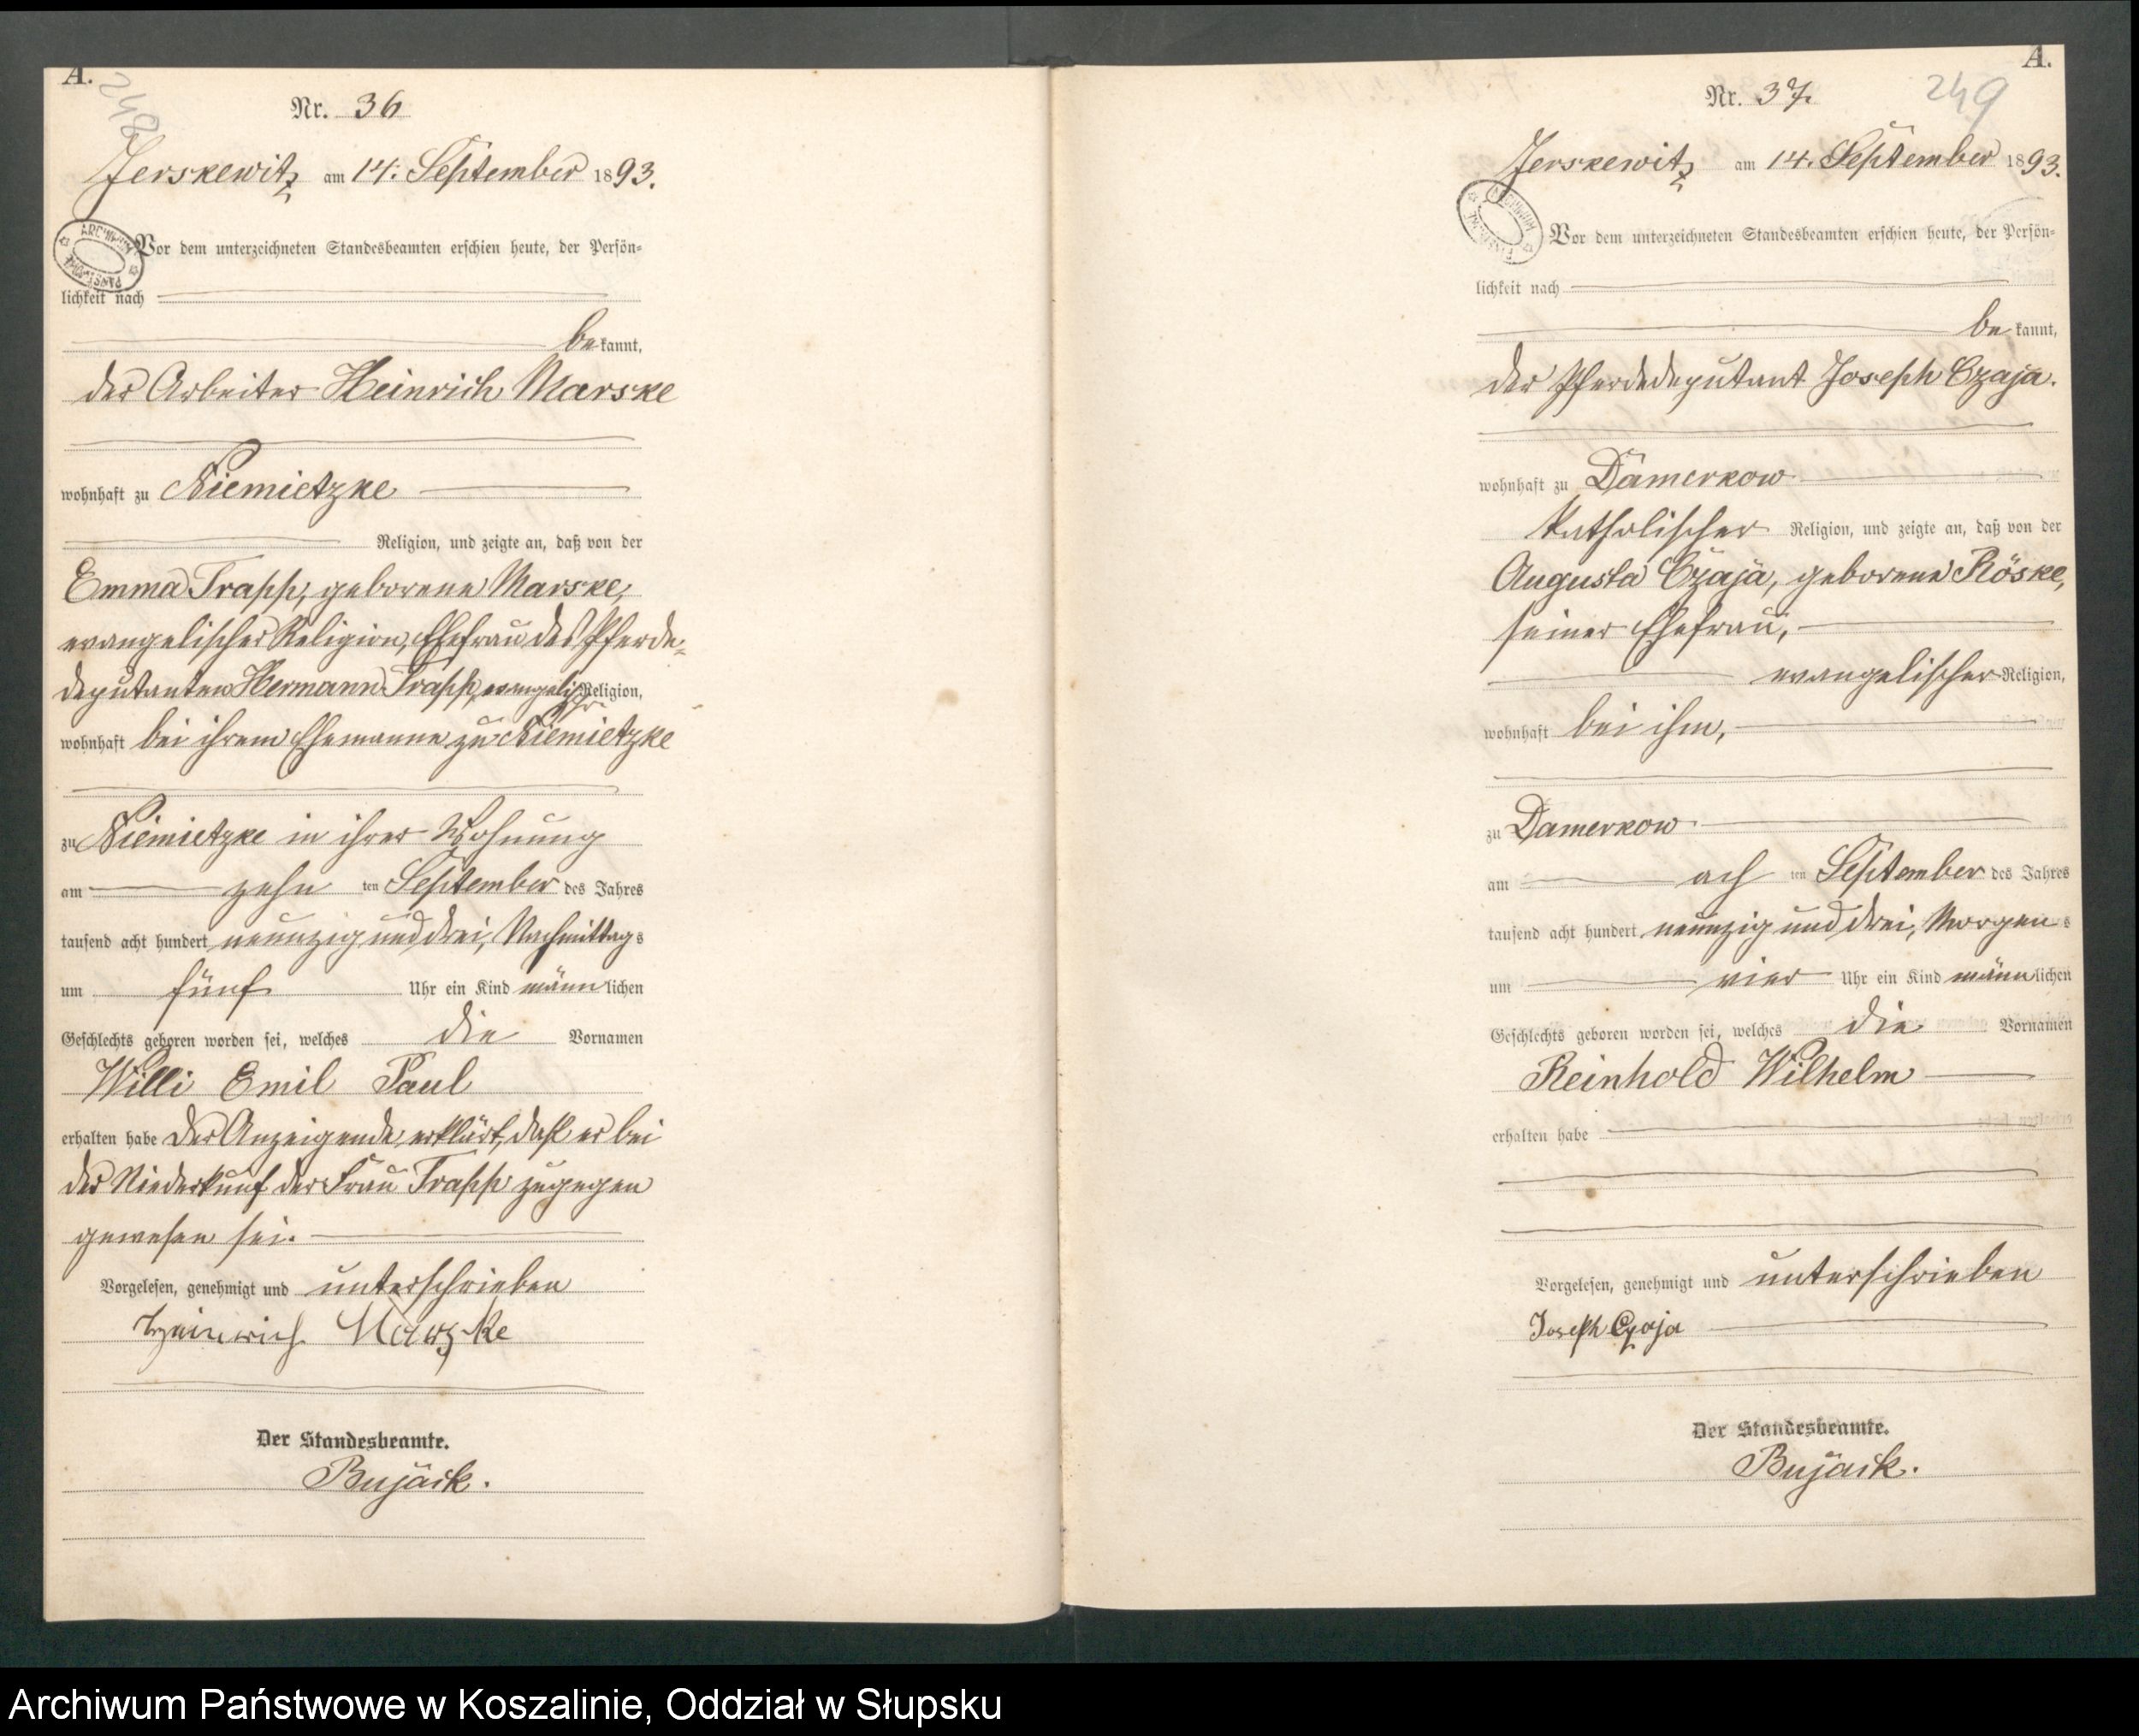 A.
248
Nr. 36
Jerskewitz am 14. September 1893.
Vor dem unterzeichneten Standesbeamten erschien heute, der Persön-
lichkeit nach
be kannt,
der Arbeiter Heinrich Marske
wohnhaft zu Niemietzke
Religion, und zeigte an, daß von der
Emma Trapp, geborene Marske,
evangelischer Religion, Ehefrau des Pferde-
deputanten Hermann Trapp, evangelischer Religion,
wohnhaft bei ihrem Ehemanne zu Niemietzke
zu Niemietzke in ihrer Wohnung
am zehn ten September des Jahres
tausend acht hundert neunzig und drei, Nachmittag s
um fünf Uhr ein Kind männ lichen
Geschlechts geboren worden sei, welches die Vornamen
Willi Emil Paul
erhalten habe Der Anzeigende erklärt, daß er bei
der Niederkunf der Frau Trapp zugegen
gewesen sei.
Vorgelesen, genehmigt und unterschrieben
Heinrich Marske
Der Standesbeamte.
Bujack.
A.
249
Nr. 37.
Jerskewitz am 14. September 1893.
Vor dem unterzeichneten Standesbeamten erschien heute, der Persön-
lichkeit nach
be kannt,
der Pferdedeputant Joseph Czaja.
wohnhaft zu Damerkow
katholischer Religion, und zeigte an, daß von der
Augusta Czaja, geborene Röske,
seiner Ehefrau,
evangelischer Religion,
wohnhaft bei ihm,
zu Damerkow
am ach ten September des Jahres
tausend acht hundert neunzig und drei, Morgen s
um vier Uhr ein Kind männ lichen
Geschlechts geboren worden sei, welches die Vornamen
Reinhold Wilhelm
erhalten habe
Vorgelesen, genehmigt und unterschrieben
Joseph Czaja
Der Standesbeamte.
Bujack.
Archiwum Państwowe w Koszalinie, Oddział w Słupsku